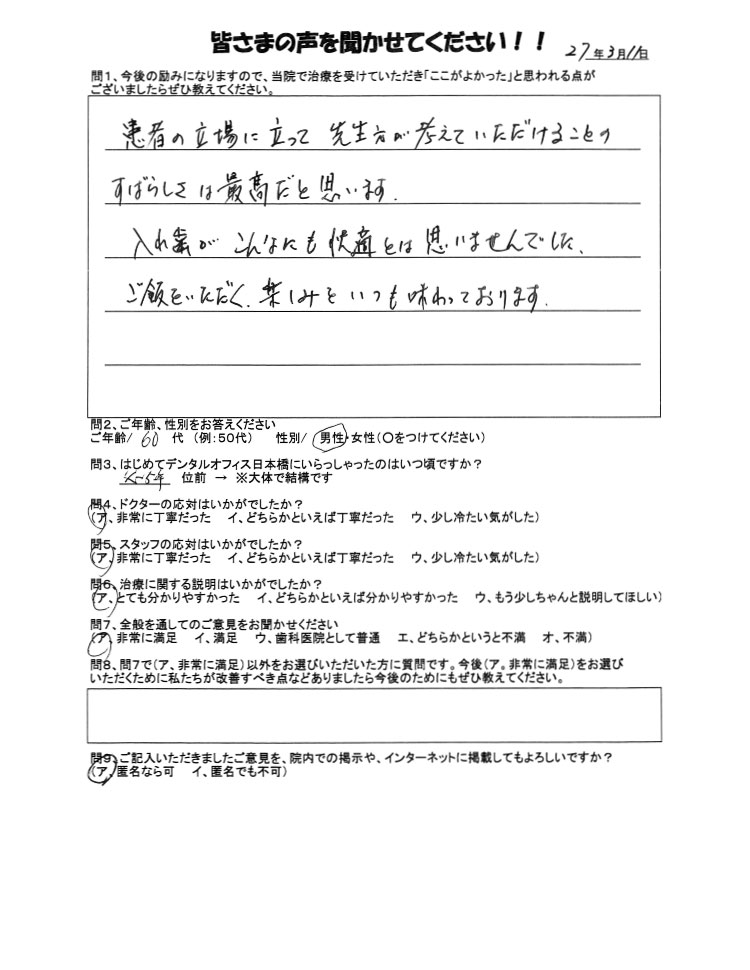 皆さまの声を聞かせてください！！
27年3月11日
問1、今後の励みになりますので、当院で治療を受けていただき「ここがよかった」と思われる点が
ございましたらぜひ教えてください。
患者の立場に立って 先生方が考えていただけることの
すばらしさは最高だと思います.
入れ歯がこんなにも快適とは思いませんでした、
ご飯をいただく、楽しみをいつも味わっております.
問2、ご年齢、性別をお答えください
ご年齢/ 60 代 （例：50代） 性別/ 男性・女性（○をつけてください）
問3、はじめてデンタルオフィス日本橋にいらっしゃったのはいつ頃ですか？
位前 → ※大体で結構です
問4、ドクターの応対はいかがでしたか？
（ア、非常に丁寧だった イ、どちらかといえば丁寧だった ウ、少し冷たい気がした）
問5、スタッフの応対はいかがでしたか？
（ア、非常に丁寧だった イ、どちらかといえば丁寧だった ウ、少し冷たい気がした）
問6、治療に関する説明はいかがでしたか？
（ア、とても分かりやすかった イ、どちらかといえば分かりやすかった ウ、もう少しちゃんと説明してほしい）
問7、全般を通してのご意見をお聞かせください
（ア、非常に満足 イ、満足 ウ、歯科医院として普通 エ、どちらかというと不満 オ、不満）
問8、問7で（ア、非常に満足）以外をお選びいただいた方に質問です。今後（ア。非常に満足）をお選び
いただくために私たちが改善すべき点などありましたら今後のためにもぜひ教えてください。
問9、ご記入いただきましたご意見を、院内での掲示や、インターネットに掲載してもよろしいですか？
（ア、匿名なら可 イ、匿名でも不可）